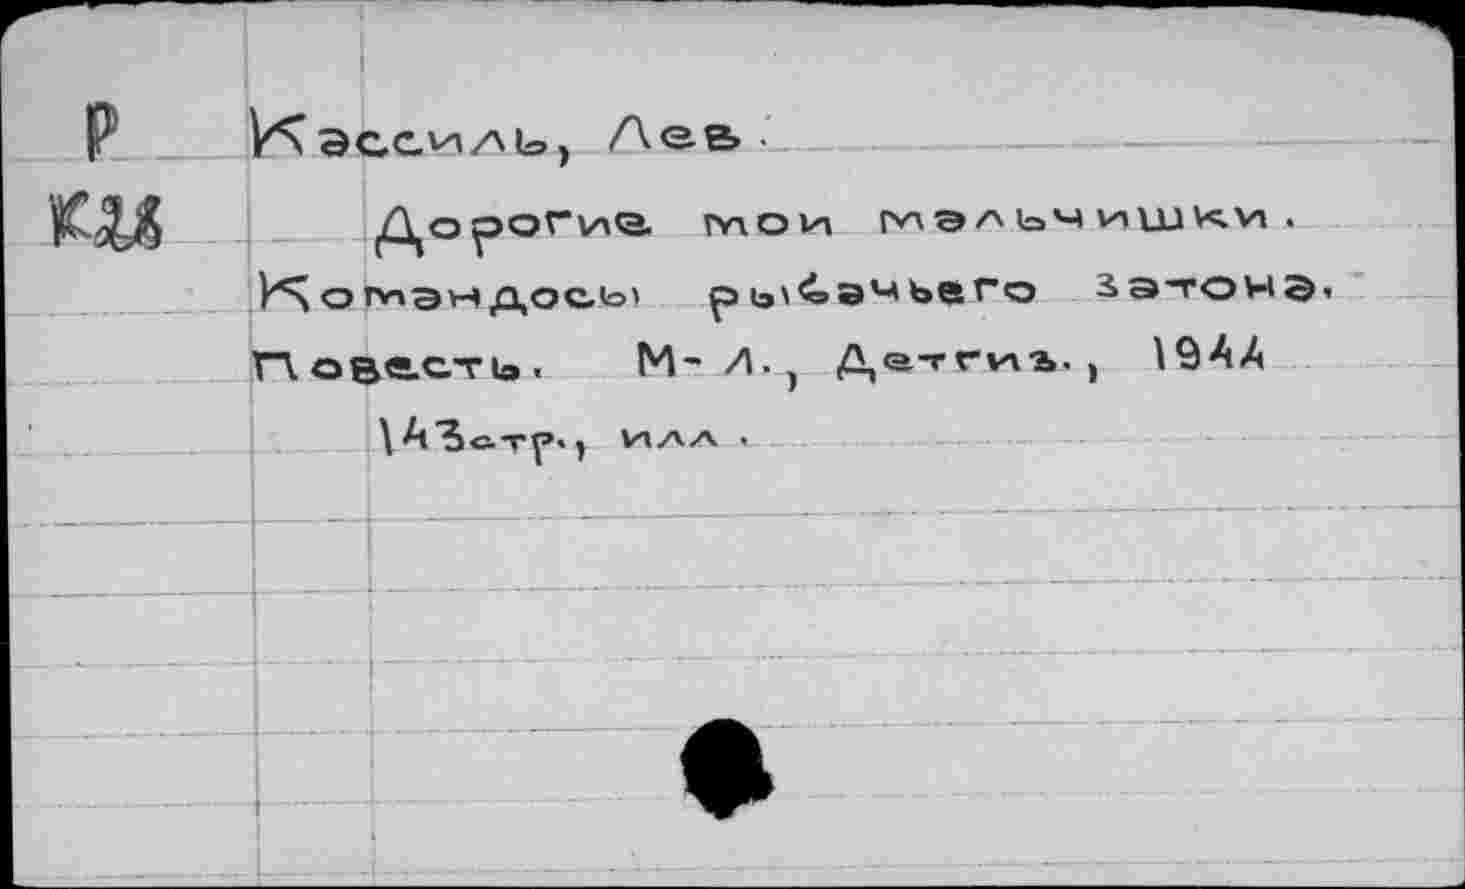 Р Кассиль, Лев.
Дорогие мои мальчишки.
Командосы рыбачьего затона.
Повесть. М-Л., Детгиз., 1944
143стр., илл.